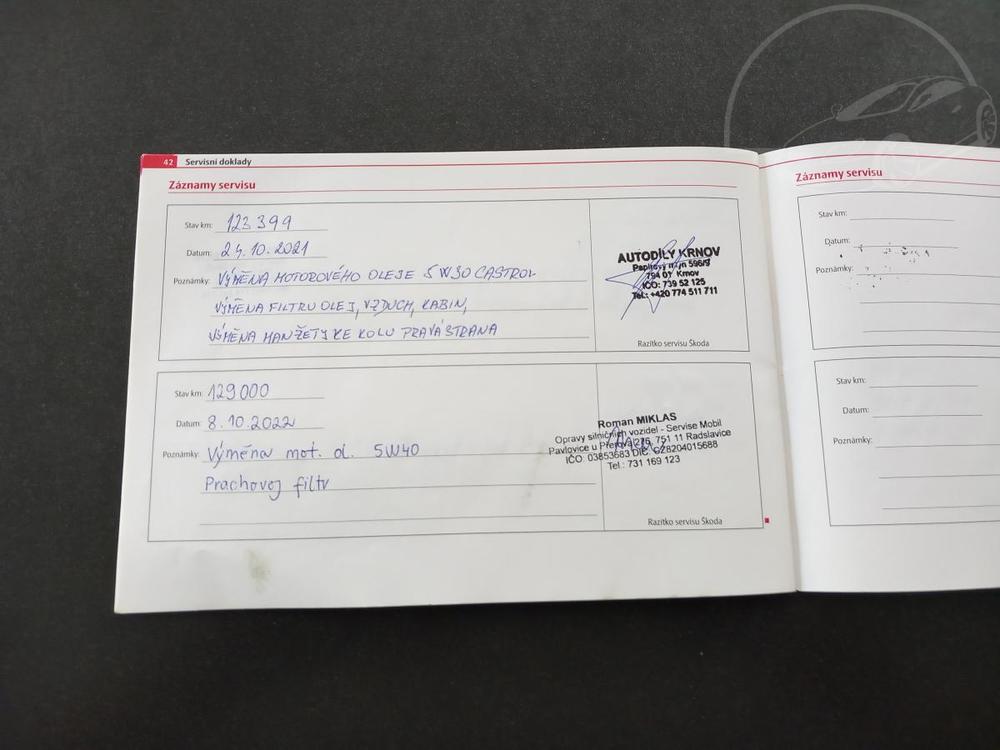 42 Servisní doklady
Záznamy servisu
Stav km: 123 399
Datum: 24.10.2021
Poznámky: VÝMĚNA MOTOROVÉHO OLEJE 5W30 CASTROL
VÝMĚNA FILTRU OLEJ, VZDUCH, KABIN,
VÝMĚNA MANŽETY KE KOLU PRAVÁ STRANA
AUTODÍLY KRNOV
Papírový mlýn 596/3
794 01 Krnov
IČO: 739 52 125
Tel.: +420 774 511 711
Razítko servisu Škoda
Stav km: 129000
Datum: 8.10.2022
Poznámky: Výměna mot. ol. 5W40
Prachovej filtr
Roman MIKLAS
Opravy silničních vozidel - Servise Mobil
Pavlovice u Přerova 275, 751 11 Radslavice
IČO: 03853683 DIČ: CZ8204015688
Tel.: 731 169 123
Razítko servisu Škoda
Záznamy servisu
Stav km:
Datum:
Poznámky:
Stav km:
Datum:
Poznámky: